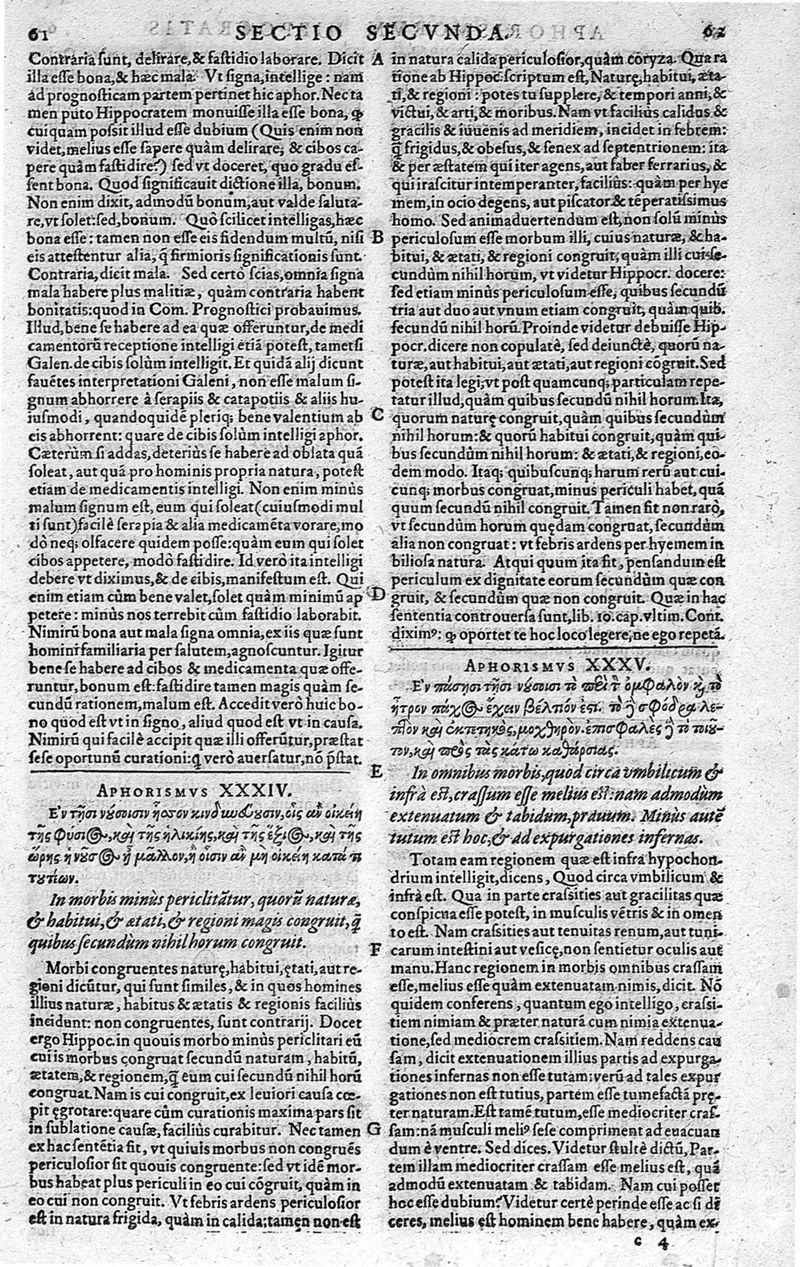 61 SECTIO SECVNDA. 62
Contraria sunt, delirare, & fastidio laborare. Dicit
illa esse bona, & hæc mala. Vt signa, intellige : nam
ad prognosticam partem pertinet hic aphor. Nec ta
men puto Hippocratem monuisse illa esse bona, ꝙ
cuiquam possit illud esse dubium (Quis enim non
videt, melius esse sapere quàm delirare, & cibos ca-
pere quàm fastidire?) sed vt doceret, quo gradu es-
sent bona. Quod significauit dictione illa, bonum.
Non enim dixit, admodũ bonum, aut valde saluta-
re, vt solet: sed, bonum. Quô scilicet intelligas, hæc
bona esse: tamen non esse eis fidendum multũ, nisi
eis attestentur alia, q̃ firmioris significationis sunt.
Contraria, dicit mala. Sed certò scias, omnia signa
mala habere plus malitiæ, quàm contraria habent
bonitatis: quod in Com. Prognostici probauimus.
Illud, bene se habere ad ea quæ offeruntur, de medi
camentorũ receptione intelligi etiã potest, tametsi
Galen. de cibis solùm intelligit. Et quidã alij dicunt
fauẽtes interpretationi Galeni, non esse malum si-
gnum abhorrere à serapiis & catapotiis & aliis hu-
iusmodi, quandoquidẽ pleriq; bene valentium ab
eis abhorrent: quare de cibis solùm intelligi aphor.
Cæterùm si addas, deterius se habere ad oblata quã
soleat, aut quã pro hominis propria natura, potest
etiam de medicamentis intelligi. Non enim minùs
malum signum est, eum qui soleat (cuiusmodi mul
ti sunt) facilè serapia & alia medicamẽta vorare, mo
dò neq; olfacere quidem posse: quàm eum qui solet
cibos appetere, modò fastidire. Id verò ita intelligi
debere vt diximus, & de cibis, manifestum est. Qui
enim etiam cùm bene valet, solet quàm minimũ ap
petere : minùs nos terrebit cùm fastidio laborabit.
Nimirũ bona aut mala signa omnia, ex iis quæ sunt
homini familiaria per salutem, agnoscuntur. Igitur
bene se habere ad cibos & medicamenta quæ offe-
runtur, bonum est: fastidire tamen magis quàm se-
cundũ rationem, malum est. Accedit verò huic bo-
no quod est vt in signo, aliud quod est vt in causa.
Nimirũ qui facilè accipit quæ illi offerũtur, præstat
sese oportunũ curationi: q̃ verò auersatur, nõ p̃stat.
APHORISMVS XXXIV.
Ἐν τῇσι νούσοισιν ἧσσον κινδυνεύουσιν, οἷς ἂν οἰκείη
τῆς φύσιος, καὶ τῆς ἡλικίης, καὶ τῆς ἕξιος, καὶ τῆς
ὥρης ἡ νοῦσος ᾖ μᾶλλον, ἢ οἷσιν ἂν μὴ οἰκείη κατά τι
τουτέων.
In morbis minùs periclitãtur, quorũ naturæ,
& habitui, & ætati, & regioni magis congruit, q̃
quibus secundùm nihil horum congruit.
Morbi congruentes naturę, habitui, ętati, aut re-
gioni dicũtur, qui sunt similes, & in quos homines
illius naturæ, habitus & ætatis & regionis facilius
incidunt: non congruentes, sunt contrarij. Docet
ergo Hippoc. in quouis morbo minùs periclitari eũ
cui is morbus congruat secundũ naturam, habitũ,
ætatem, & regionem, q̃ eum cui secundũ nihil horũ
congruat. Nam is cui congruit, ex leuiori causa cœ-
pit ęgrotare: quare cùm curationis maxima pars sit
in sublatione causæ, faciliùs curabitur. Nec tamen
ex hac sentẽtia fit, vt quiuis morbus non congruẽs
periculosior sit quouis congruente: sed vt idẽ mor-
bus habeat plus periculi in eo cui cõgruit, quàm in
eo cui non congruit. Vt febris ardens periculosior
est in natura frigida, quàm in calida: tamen non est
A
B
C
D
E
F
G
in natura calida periculosior, quàm coryza. Qua ra
tione ab Hippoc. scriptum est, Naturę, habitui, æta-
ti, & regioni : potes tu supplere, & tempori anni, &
victui, & arti, & moribus. Nam vt faciliùs calidus &
gracilis & iuuenis ad meridiem, incidet in febrem:
q̃ frigidus, & obesus, & senex ad septentrionem: ita
& per æstatem qui iter agens, aut faber ferrarius, &
qui irascitur intemperanter, faciliùs: quàm per hye
mem, in ocio degens, aut piscator & tẽperatissimus
homo. Sed animaduertendum est, non solũ minùs
periculosum esse morbum illi, cuius naturæ, & ha-
bitui, & ætati, & regioni congruit, quàm illi cui se-
cundùm nihil horum, vt videtur Hippocr. docere:
sed etiam minùs periculosum esse, quibus secundũ
tria aut duo aut vnum etiam congruit, quàm quib.
secundũ nihil horũ. Proinde videtur debuisse Hip-
pocr. dicere non copulatè, sed deiunctè, quorũ na-
turæ, aut habitui, aut ætati, aut regioni cõgruit. Sed
potest ita legi, vt post quamcunq; particulam repe-
tatur illud, quàm quibus secundũ nihil horum. Ita,
quorum naturę congruit, quàm quibus secundùm
nihil horum: & quorũ habitui congruit, quàm qui-
bus secundùm nihil horum: & ætati, & regioni, eo-
dem modo. Itaq; quibuscunq; harum rerũ aut cui-
cunq; morbus congruat, minus periculi habet, quã
quum secundũ nihil congruit. Tamen fit non rarò,
vt secundùm horum quędam congruat, secundùm
alia non congruat : vt febris ardens per hyemem in
biliosa natura. Atqui quum ita fit, pensandum est
periculum ex dignitate eorum secundùm quæ con
gruit, & secundùm quæ non congruit. Quæ in hac
sententia controuersa sunt, lib. 10. cap. vltim. Cont.
diximꝰ: ꝙ oportet te hoc loco legere, ne ego repetã.
APHORISMVS XXXV.
Ἐν πάσῃσι τῇσι νούσοισι τὸ περὶ τὸν ὀμφαλὸν καὶ τὸ
ἦτρον πάχος ἔχειν βέλτιόν ἐστι. τὸ δὲ σφόδρα λε-
πτὸν καὶ ἐκτετηκὸς, μοχθηρόν. ἐπισφαλὲς δὲ τὸ τοιοῦ-
τον, καὶ πρὸς τὰς κάτω καθάρσιας.
In omnibus morbis, quod circa vmbilicum &
infrà est, crassum esse melius est: nam admodùm
extenuatum & tabidum, prauum. Minùs autẽ
tutum est hoc, & ad expurgationes infernas.
Totam eam regionem quæ est infra hypochon-
drium intelligit, dicens, Quod circa vmbilicum &
infrà est. Qua in parte crassities aut gracilitas quæ
conspicua esse potest, in musculis vẽtris & in omen
to est. Nam crassities aut tenuitas renum, aut tuni-
carum intestini aut vesicę, non sentietur oculis aut
manu. Hanc regionem in morbis omnibus crassam
esse, melius esse quàm extenuatam nimis, dicit. Nõ
quidem conferens, quantum ego intelligo, crassi-
tiem nimiam & præter naturã cum nimia extenua-
tione, sed mediocrem crassitiem. Nam reddens cau
sam, dicit extenuationem illius partis ad expurga-
tiones infernas non esse tutam: verũ ad tales expur
gationes non est tutius, partem esse tumefactã prę-
ter naturam. Est tamẽ tutum, esse mediocriter cras-
sam: nã musculi meliꝰ sese compriment ad euacuan
dum è ventre. Sed dices. Videtur stultè dictũ, Par-
tem illam mediocriter crassam esse melius est, quã
admodũ extenuatam & tabidam. Nam cui posset
hoc esse dubium? Videtur certè perinde esse ac si di
ceres, melius est hominem bene habere, quàm ex-
c 4